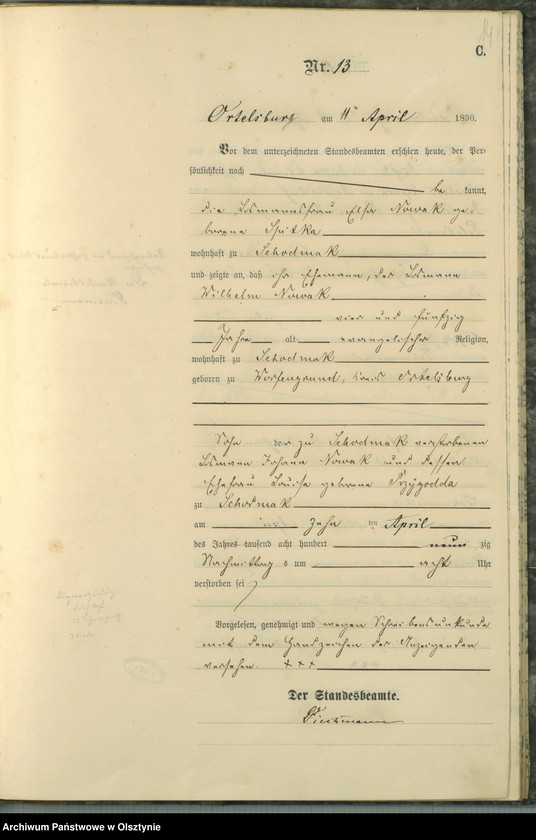 C.
Nr. 13
Ortelsburg am 11ten April 1890.
Vor dem unterzeichneten Standesbeamten erschien heute, der Per-
sönlichkeit nach
be kannt,
die Losmannsfrau Elsa Nowak ge
borene
wohnhaft zu Schodmak
und zeigte an, daß ihr Ehemann, der Losmann
Wilhelm Nowak
vier und fünfzig
Jahre alt evangelischer Religion,
wohnhaft zu Schodmak
geboren zu Kreis Ortelsburg
Sohn der zu Schodmak verstorbenen
Losmann Johann Nowak und dessen
Ehefrau Louise geborene
zu Schodmak
am zehn ten April
des Jahres tausend acht hundert neun zig
Nachmittag s um acht Uhr
verstorben sei
Vorgelesen, genehmigt und wegen Schreibensunkunde
mit dem Handzeichen der Anzeigenden
versehen. + + +
Der Standesbeamte.
Archiwum Państwowe w Olsztynie